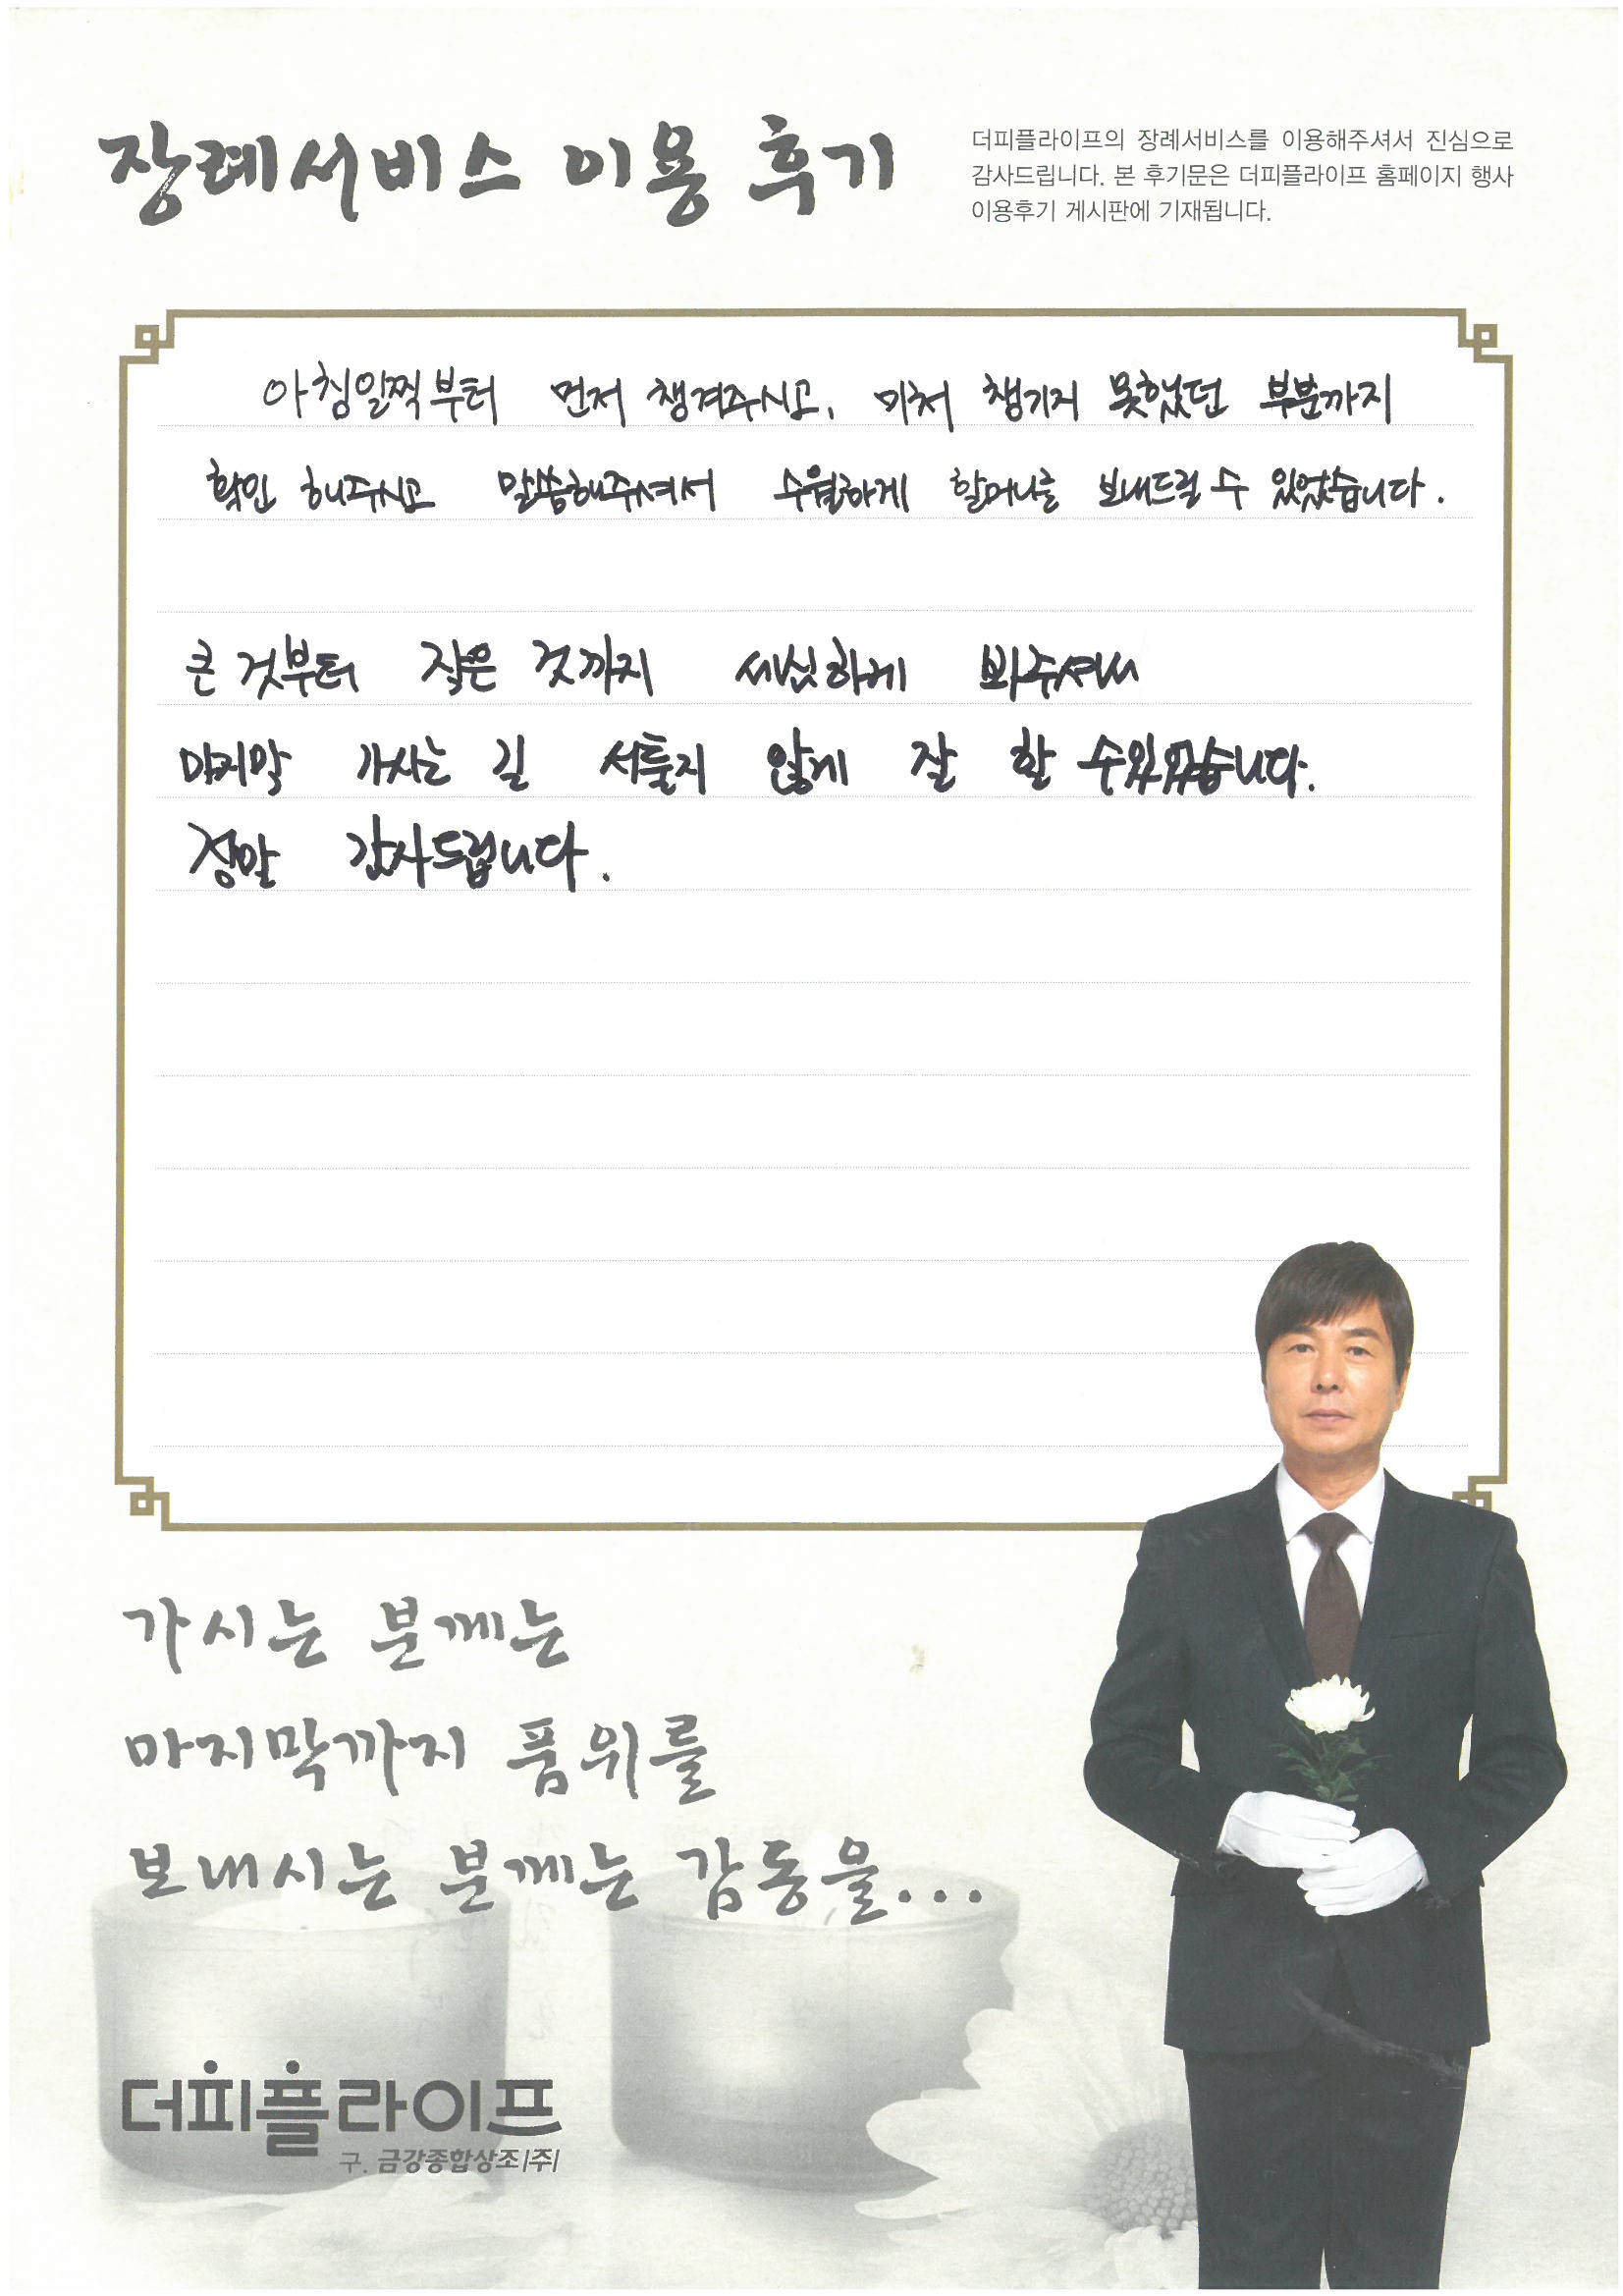 장례서비스 이용 후기
더피플라이프의 장례서비스를 이용해주셔서 진심으로
감사드립니다. 본 후기문은 더피플라이프 홈페이지 행사
이용후기 게시판에 기재됩니다.
아침일찍부터 먼저 챙겨주시고, 미처 챙기지 못했던 부분까지
확인 해주시고 말씀해주셔서 수월하게 할머니를 보내드릴 수 있었습니다.
큰 것부터 작은 것까지 세심하게 봐주셔서
마지막 가시는 길 서툴지 않게 잘 할 수있었습니다.
정말 감사드립니다.
가시는 분께는
마지막까지 품위를
보내시는 분께는 감동을...
더피플라이프
구. 금강종합상조(주)